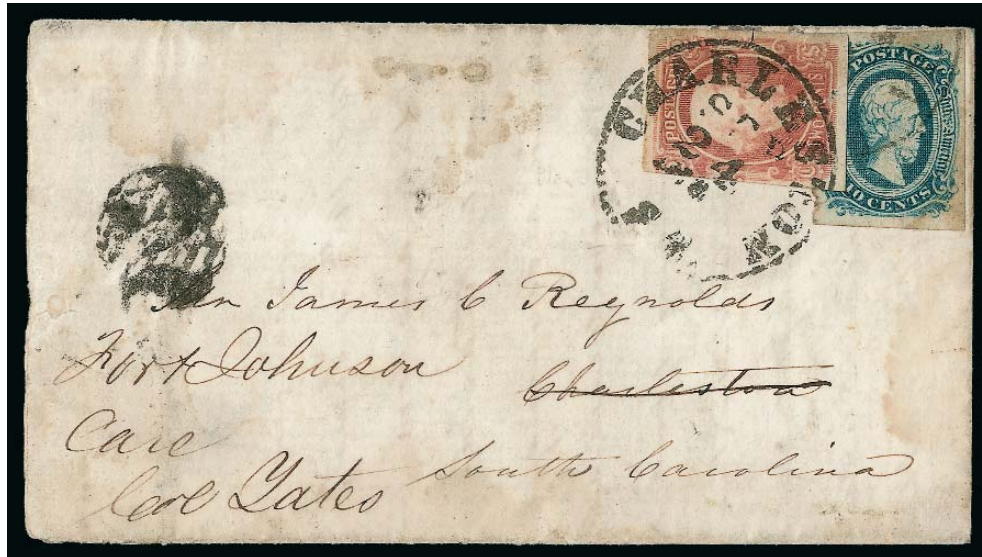 CHARLESTON
24
POSTAGE
POSTAGE
10 CENTS
James C Reynolds
Fort Johnson Charleston
Care
Col Yates South Carolina